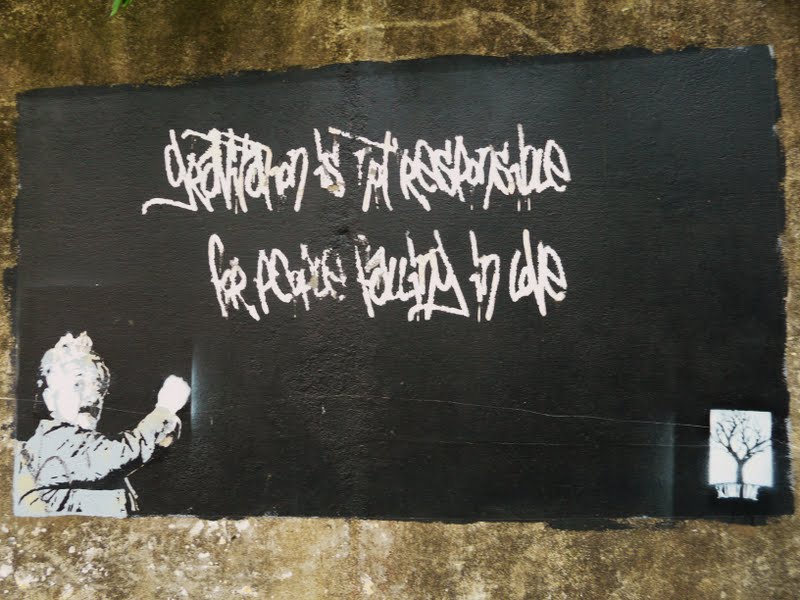 gravitation is not responsible
for people falling in love